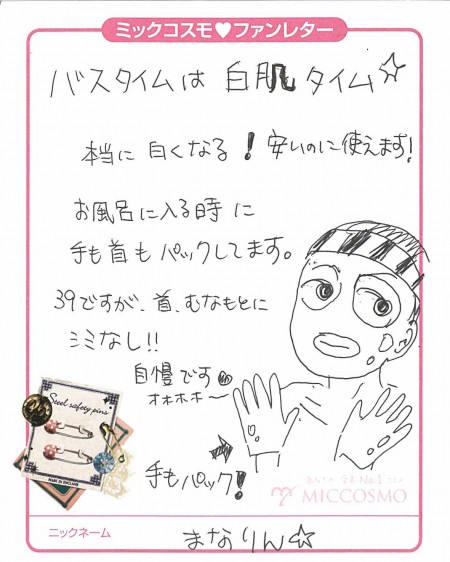 ミックコスモ♥ファンレター
バスタイムは 白肌タイム☆
本当に 白くなる！安いのに使えます！
お風呂に入る時に
手も首もパックしてます。
39ですが、首、むなもとに
シミなし!!
自慢です。
オホホホ〜
Steel safety pins
MADE IN ENGLAND
手もパック！
MICCOSMO
ニックネーム
まなりん☆